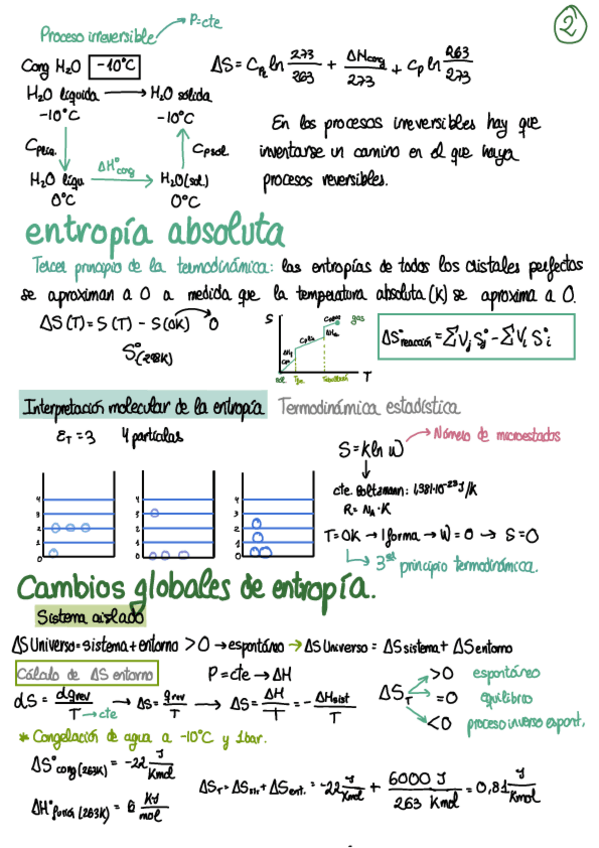 2
Proceso irreversible → P=cte
Cong H₂O -10°C
ΔS = Cp ln 273/263 + ΔHcong/273 + Cp ln 263/273
H₂O líquida → H₂O sólida
-10°C -10°C
Cpsol
ΔH°cong
H₂O líqu → H₂O (sol)
0°C 0°C
En los procesos irreversibles hay que
inventarse un camino en el que haya
procesos reversibles.
entropía absoluta
Tercer principio de la termodinámica: las entropías de todos los cristales perfectos
se aproximan a 0 a medida que la temperatura absoluta (K) se aproxima a 0.
ΔS(T) = S(T) - S(0K) → 0
S°(298K)
S gas T
ΔS°reacción = ΣVj Sj° - ΣVi S°i
Interpretación molecular de la entropía Termodinámica estadística
ε_T = 3 4 partículas
S = k ln W → Número de microestados
cte. Boltzmann: 1,381·10⁻²³ J/K
R = N_A · K
4 3 2 1 0
T=0K → 1 forma → W=0 → S=0
→ 3er principio termodinámica.
Cambios globales de entropía.
Sistema aislado
ΔS Universo = sistema + entorno > 0 → espontáneo → ΔS Universo = ΔS sistema + ΔS entorno
Cálculo de ΔS entorno P = cte → ΔH
dS = dqrev/T → cte → ΔS = qrev/T → ΔS = ΔH/T = - ΔHsist/T
ΔS_T >0 espontáneo
=0 equilibrio
<0 proceso inverso espont.
* Congelación de agua a -10°C y 1 bar.
ΔS°cong (263K) = -22 J/Kmol
ΔS_T = ΔSsis + ΔSent. = -22 J/Kmol + 6000 J/263 Kmol = 0,81 J/Kmol
ΔH°fusión (263K) = 6 KJ/mol